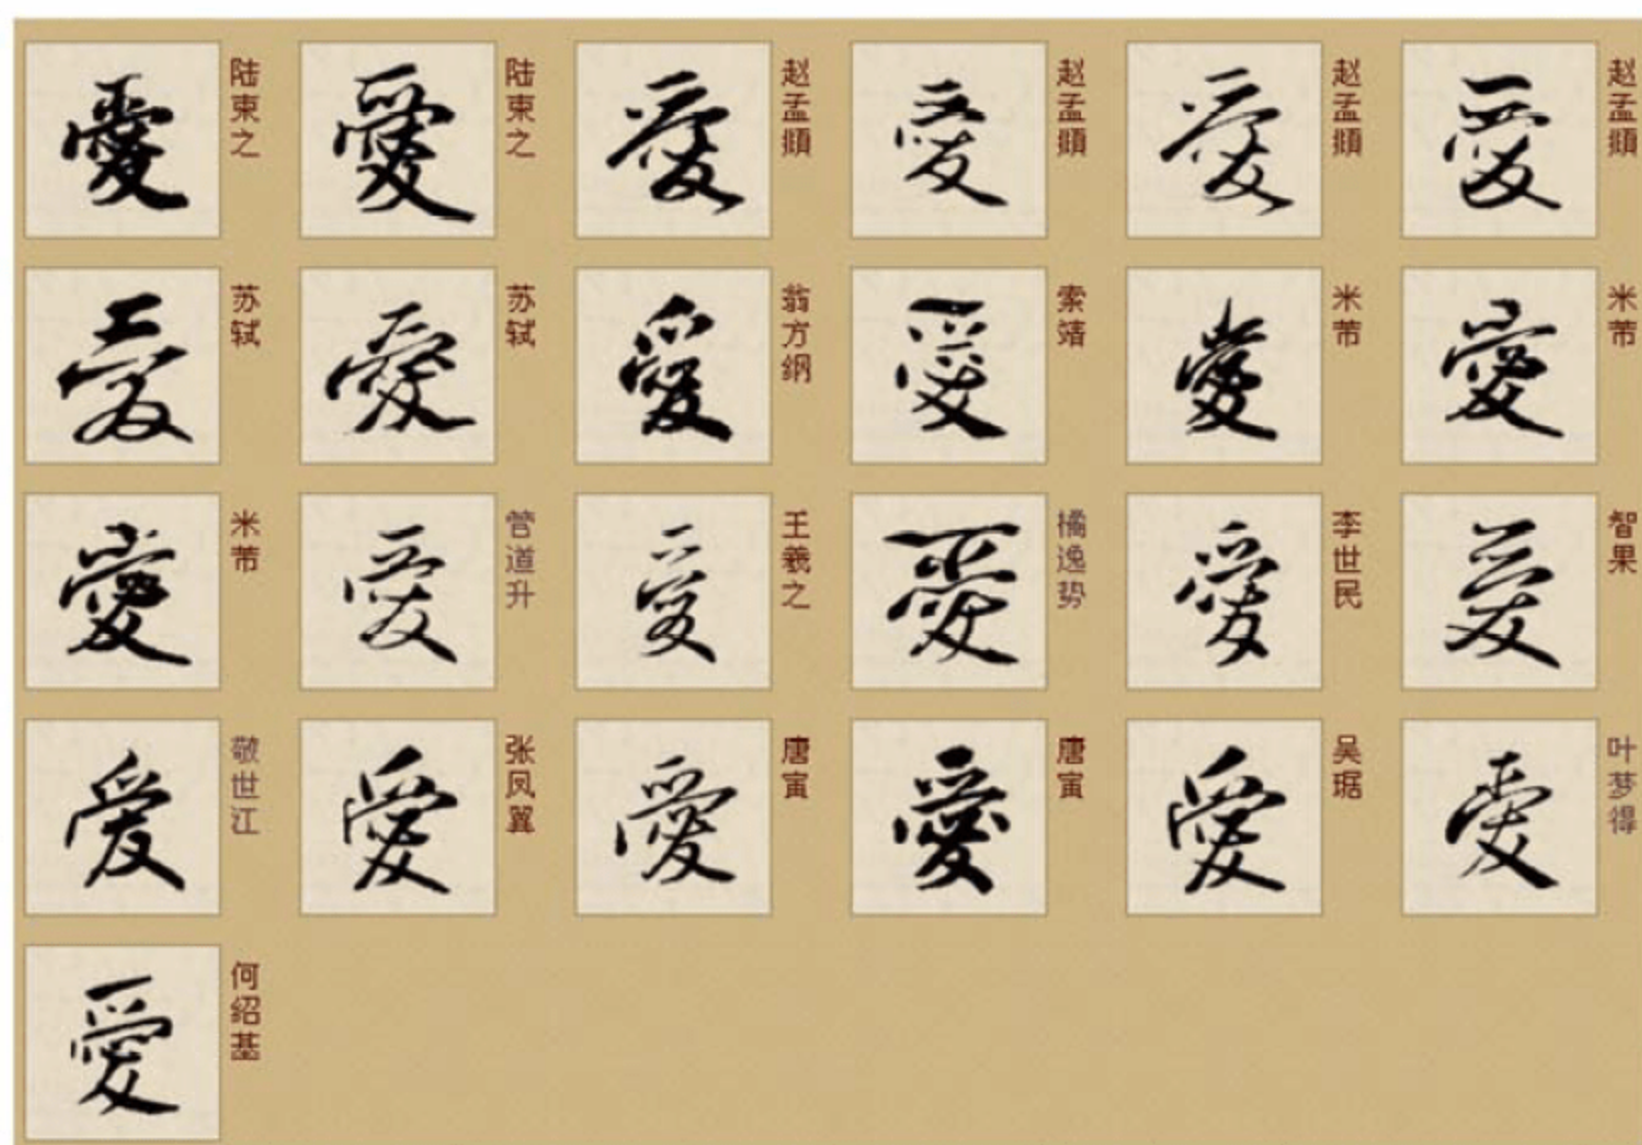 愛 陆柬之 愛 陆柬之 愛 赵孟頫 愛 赵孟頫 愛 赵孟頫 愛 赵孟頫
愛 苏轼 愛 苏轼 愛 翁方纲 愛 索靖 愛 米芾 愛 米芾
愛 米芾 愛 管道升 愛 王羲之 愛 橘逸势 愛 李世民 愛 智果
愛 敬世江 愛 张凤翼 愛 唐寅 愛 唐寅 愛 吴琚 愛 叶梦得
愛 何绍基